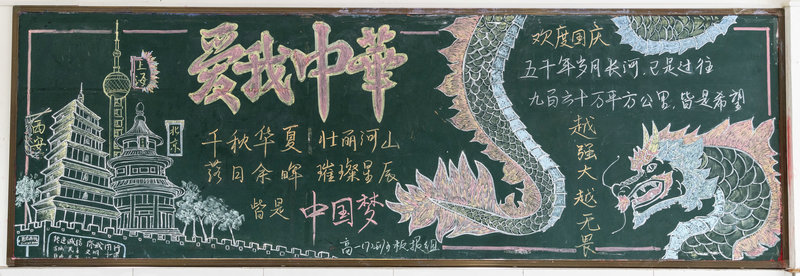 爱我中華
上海
北京
西安
千秋华夏 壮丽河山
落日余晖 璀璨星辰
皆是 中国梦
欢度国庆
五千年岁月长河,已是过往
九百六十万平方公里,皆是希望
越强大越无畏